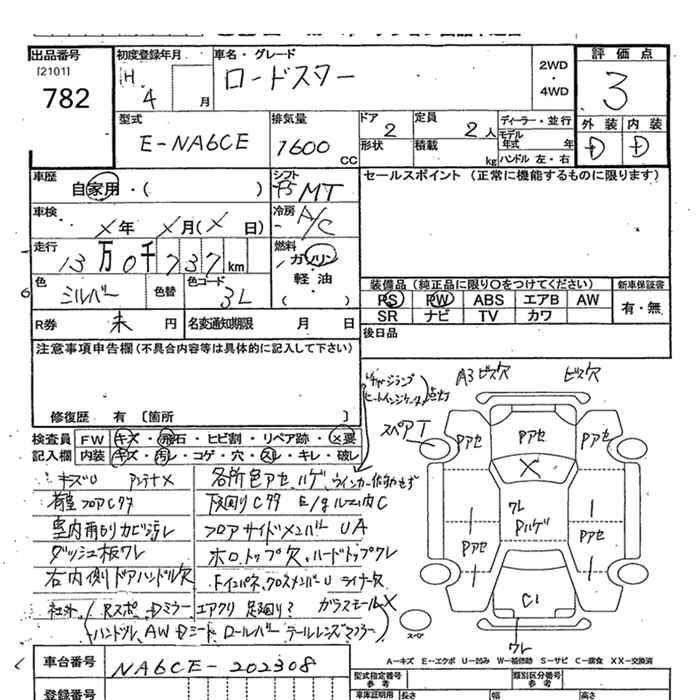 出品番号
[2101]
782
初度登録年月
H 4 月
車名・グレード
ロードスター
2WD・4WD
評価点
3
外装 内装
D D
型式
E-NA6CE
排気量
1600 CC
ドア
2
定員
2人
形状
積載
kg
ディーラー・並行
モデル年式 年
ハンドル 左・右
車歴
自家用・( )
シフト
F5 MT
セールスポイント (正常に機能するものに限ります)
車検
X年 X月(X日)
冷房
A/C
走行
13万0千737km
燃料
ガソリン
軽油
( )
色
シルバー
色替
色コード
3L
装備品 (純正品に限り○をつけてください)
PS PW ABS エアB AW
SR ナビ TV カワ
新車保証書
有・無
R券 未 円
名変通知期限 月 日
後日品
注意事項申告欄 (不具合内容等は具体的に記入して下さい)
修復歴 有 [箇所 ]
検査員記入欄
FW キズ・飛石・ヒビ割・リペア跡・X要
内装 キズ・汚レ・コゲ・穴・スレ・キレ・破レ
キズU アンテナX
各所色アセ、ハゲ、ウインカー作動せず
フロアCサ
下廻りCサ E/gルーム内C
室内雨もりカビ汚レ
フロアサイドメンバーUA
ダッシュ板ワレ
ホロ、トップ欠、ハードトップワレ
右内側ドアハンドル欠
Fインパネ、クロスメンバーU ライナー欠
社外 Rスポ Dミラー エアクリ 足廻り? ガラスモールX
ハンドル、AW Dミード、ロールバー テールレンズ マフラー
A3 ビス穴
ビス穴
スペアT
Pアセ
Pアセ
Pアセ
X
ワレ
Pハゲ
Pアセ
Pアセ
C1
ワレ
スペア
A-キズ E-エクボ U-凹み W-補修跡 S-サビ C-腐食 XX-交換済
車台番号
NA6CE-202308
登録番号
型式指定番号
参考
類別区分番号
参考
車庫証明用 長さ 幅 高さ